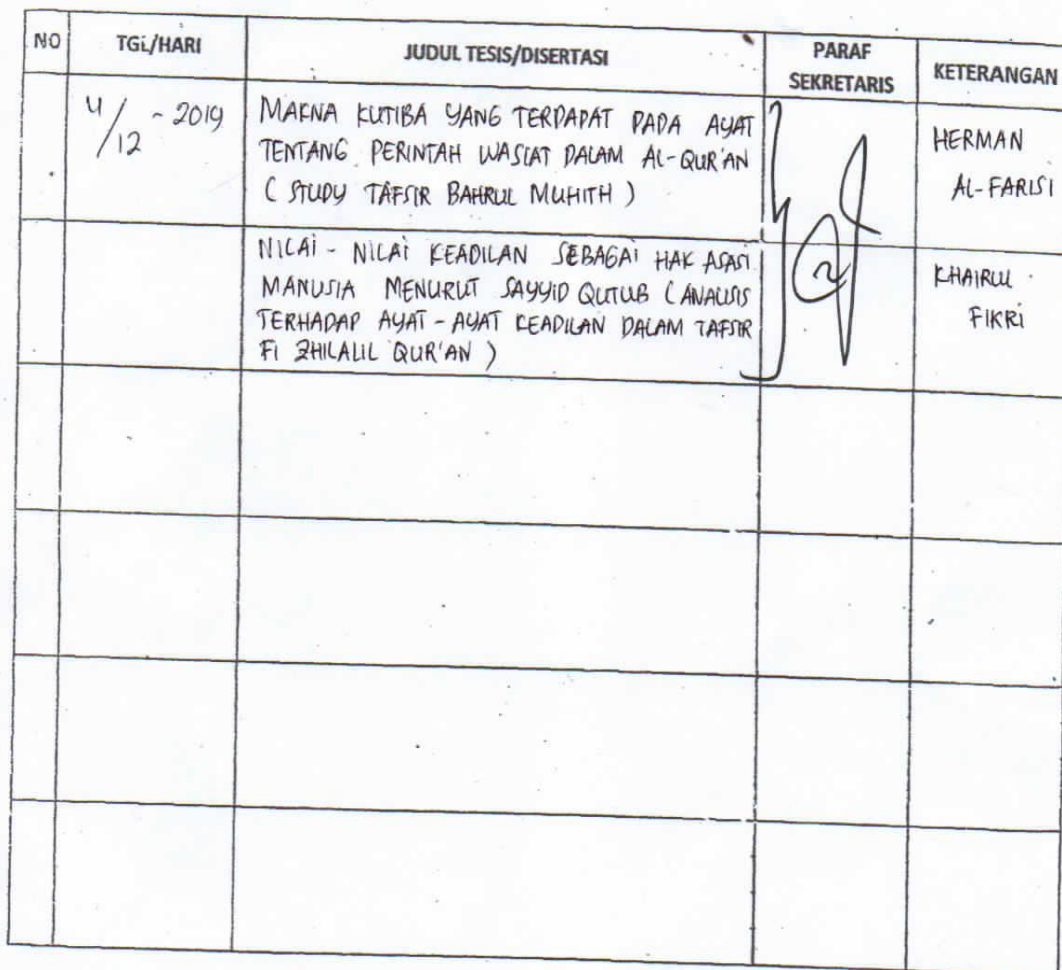 NO TGL/HARI JUDUL TESIS/DISERTASI PARAF SEKRETARIS KETERANGAN
4/12 - 2019
MAKNA KUTIBA YANG TERDAPAT PADA AYAT
TENTANG PERINTAH WASIAT DALAM AL-QUR'AN
( STUDY TAFSIR BAHRUL MUHITH )
HERMAN
AL-FARISI
NILAI - NILAI KEADILAN SEBAGAI HAK ASASI
MANUSIA MENURUT SAYYID QUTUB ( ANALISIS
TERHADAP AYAT - AYAT KEADILAN DALAM TAFSIR
FI ZHILALIL QUR'AN )
KHAIRUL
FIKRI